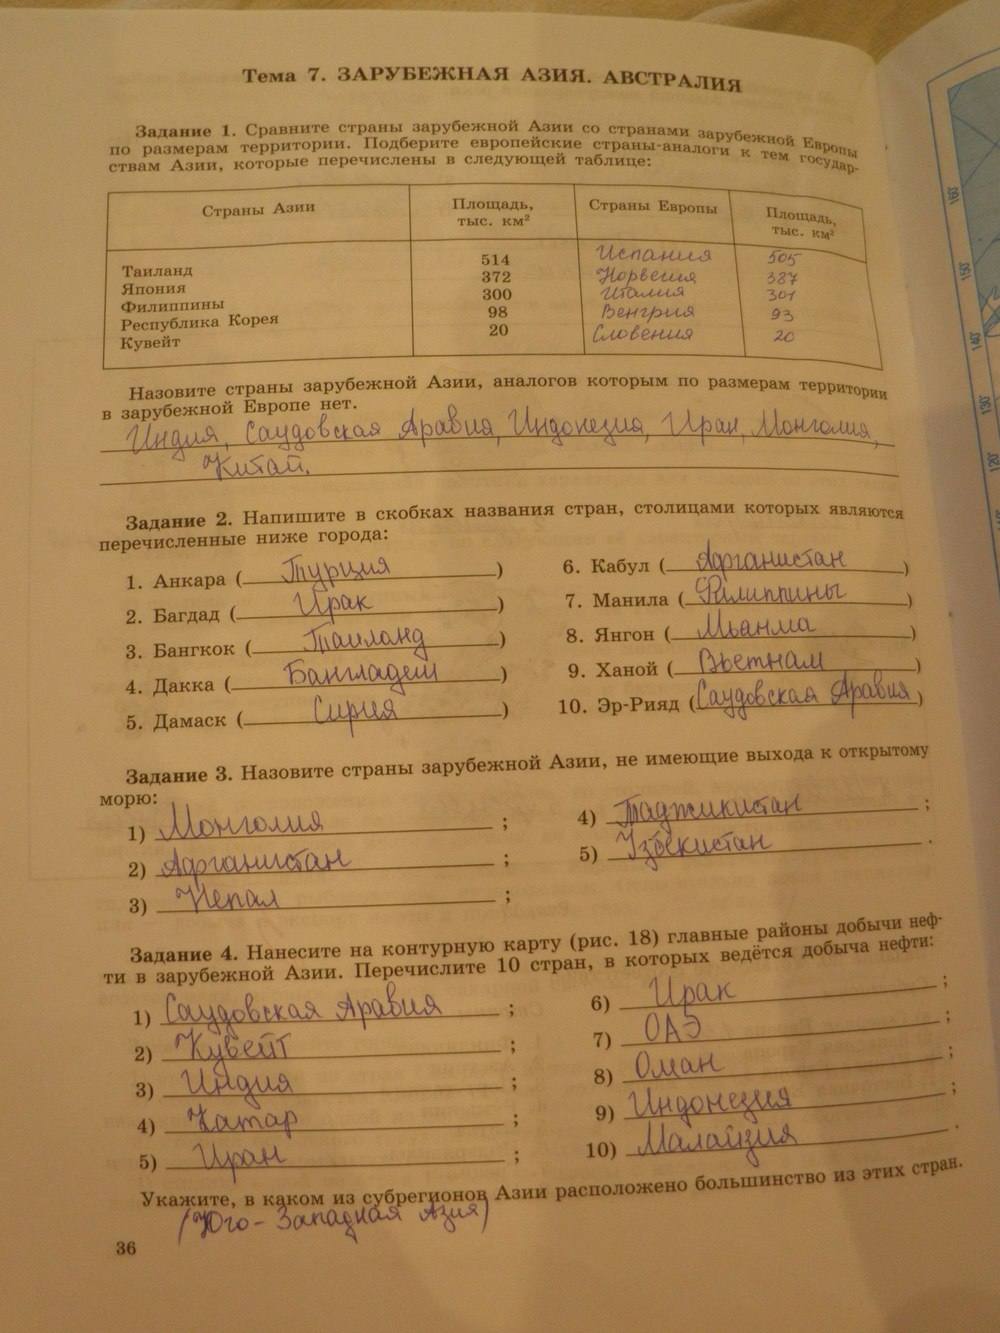 Тема 7. ЗАРУБЕЖНАЯ АЗИЯ. АВСТРАЛИЯ
Задание 1. Сравните страны зарубежной Азии со странами зарубежной Европы
по размерам территории. Подберите европейские страны-аналоги к тем государ-
ствам Азии, которые перечислены в следующей таблице:
Страны Азии Площадь, тыс. км² Страны Европы Площадь, тыс. км²
Таиланд 514 Испания 505
Япония 372 Норвегия 387
Филиппины 300 Италия 301
Республика Корея 98 Венгрия 93
Кувейт 20 Словения 20
Назовите страны зарубежной Азии, аналогов которым по размерам территории
в зарубежной Европе нет.
Индия, Саудовская Аравия, Индонезия, Иран, Монголия,
Китай.
Задание 2. Напишите в скобках названия стран, столицами которых являются
перечисленные ниже города:
1. Анкара (Турция)
2. Багдад (Ирак)
3. Бангкок (Таиланд)
4. Дакка (Бангладеш)
5. Дамаск (Сирия)
6. Кабул (Афганистан)
7. Манила (Филиппины)
8. Янгон (Мьянма)
9. Ханой (Вьетнам)
10. Эр-Рияд (Саудовская Аравия)
Задание 3. Назовите страны зарубежной Азии, не имеющие выхода к открытому
морю:
1) Монголия;
2) Афганистан;
3) Непал;
4) Таджикистан;
5) Узбекистан.
Задание 4. Нанесите на контурную карту (рис. 18) главные районы добычи неф-
ти в зарубежной Азии. Перечислите 10 стран, в которых ведётся добыча нефти:
1) Саудовская Аравия;
2) Кувейт;
3) Индия;
4) Катар;
5) Иран;
6) Ирак;
7) ОАЭ;
8) Оман;
9) Индонезия;
10) Малайзия.
Укажите, в каком из субрегионов Азии расположено большинство из этих стран.
(Юго-Западная Азия)
36
160°
150°
140°
130°
120°